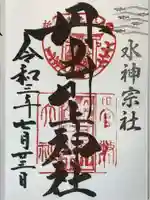 水神宗社
丹生川上神社
令和三年七月廿三日